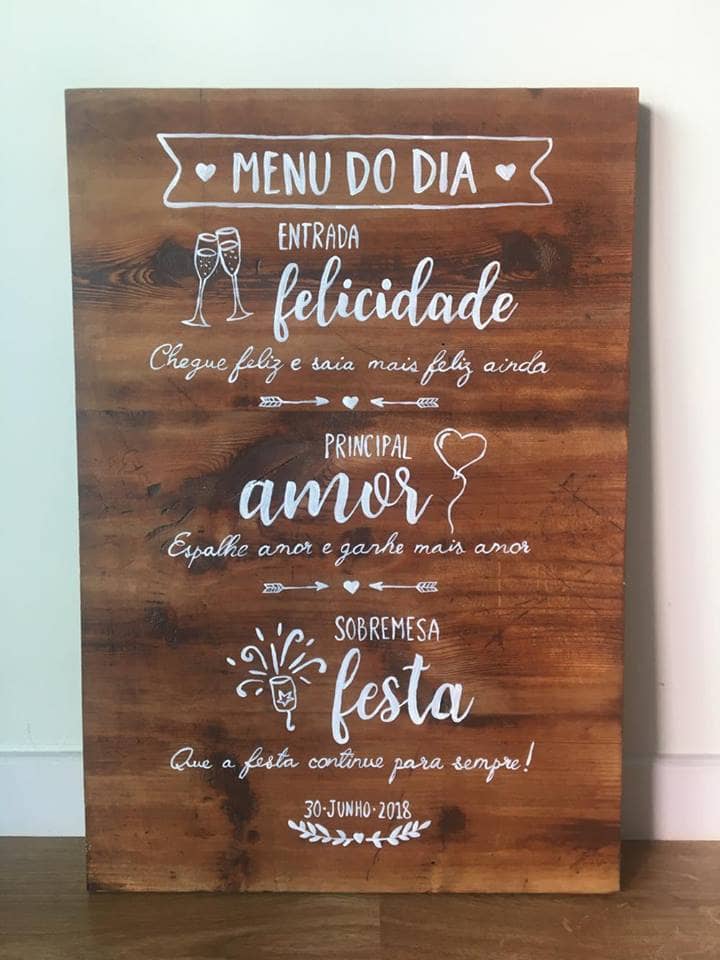 MENU DO DIA
ENTRADA
felicidade
Chegue feliz e saia mais feliz ainda
PRINCIPAL
amor
Espalhe amor e ganhe mais amor
SOBREMESA
festa
Que a festa continue para sempre!
30·JUNHO·2018